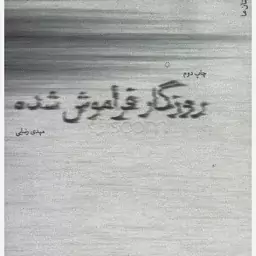 چاپ دوم
روزگار فراموش شده
مهدی رضایی